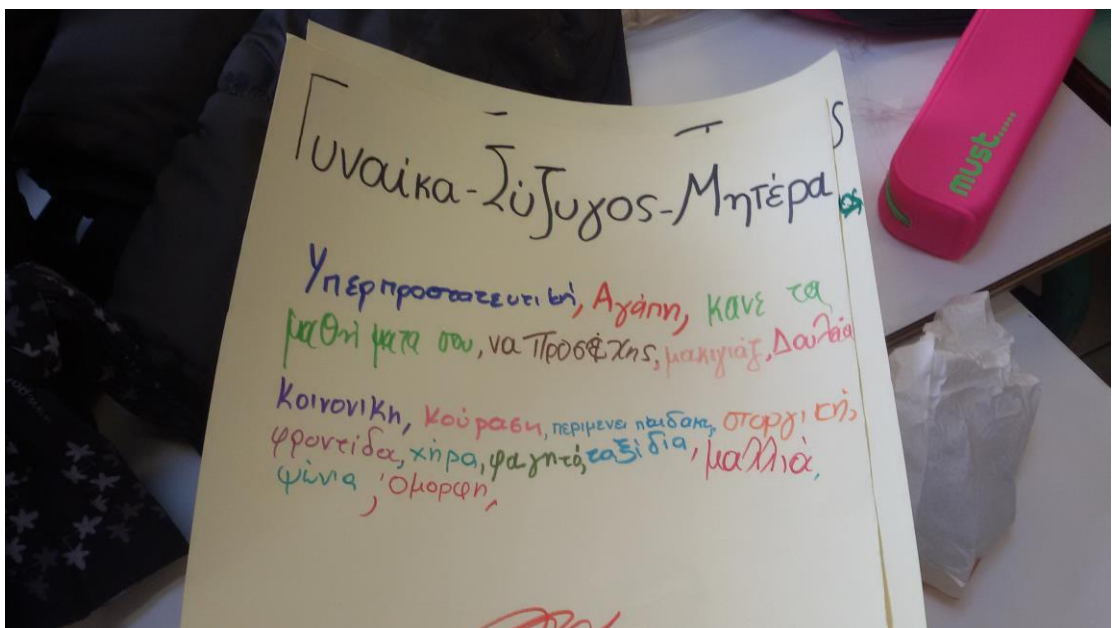 Γυναίκα-Σύζυγος-Μητέρα
Υπερπροστατευτική, Αγάπη, κανε τα
μαθήματα σου, να προσέχης, μακιγιάζ, Δουλεία
Κοινονικη, κούραση, περιμενει παιδακι, στοργική,
φροντίδα, χήρα, φαγητό, ταξίδια, μαλλιά,
ψώνια, όμορφη,
must.....